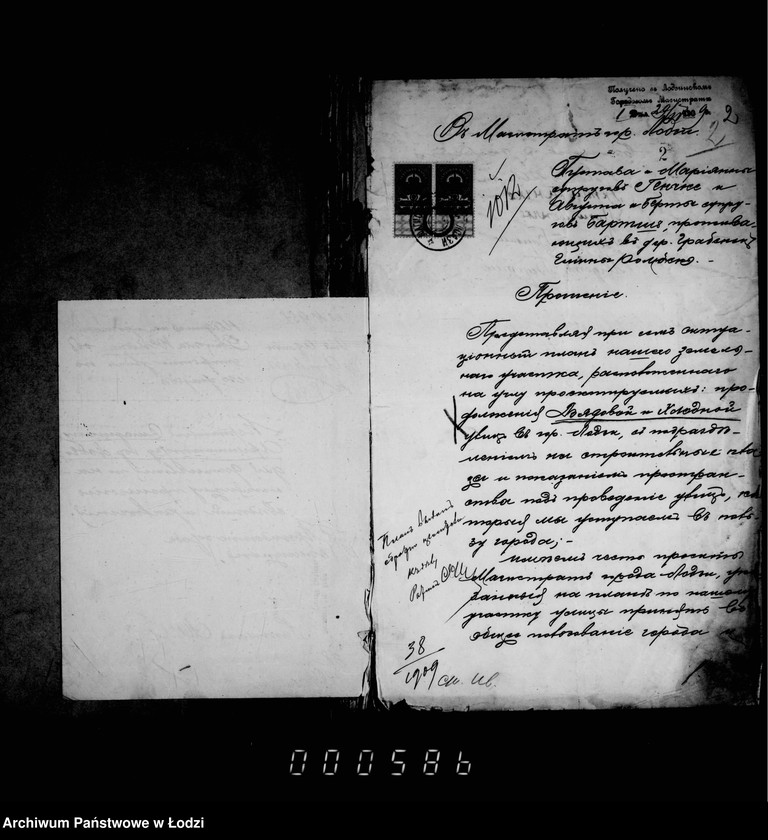 Получено въ Лодзинскомъ
Городскомъ Магистратѣ
2
Въ Магистратъ гор. Лодзи.
2
Густава и Маріянны
супруговъ Генике и
Августа и Берты супру-
говъ Бартшъ, прожива-
ющихъ въ дер. Грабенецъ
Гмины
1012
Прошеніе.
Представляя при семъ ситуа-
ціонный планъ нашего земель-
наго участка, расположеннаго
на углу проектируемыхъ: про-
долженія Вѣдовой и Холодной
улицъ въ гор. Лодзи, съ подраздѣ-
леніемъ на строительные пла-
цы и показаніемъ простран-
ства подъ проведеніе улицъ, ко-
торыя мы уступаемъ въ поль-
зу города,-
имѣемъ честь просить
Магистратъ города Лодзи, ука-
занныя на планѣ по нашему
участку улицы принять въ
общее пользованіе города и
38
1909
см. ив.
000586
Archiwum Państwowe w Łodzi